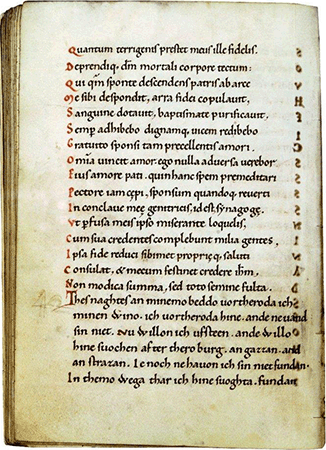 Quantum terrigenis prestet meus ille fidelis.
Deprendiq; dm̄ mortali corpore tectum:
Qui qm̄ sponte descendens patris ab arce
Me sibi despondit, arra fidei copulavit,
Sanguine dotavit, baptismate purificavit.
Semp adhibebo dignamq; uicem redibebo
Gratuito sponsi tam precellentis amori.
Om̄ia vincit amor. ego nulla adversa verebor
ius amore pati. quin hanc spem premeditari
Pectore iam cepi, sponsum quandoq; reverti
In conclave meę genitricis, id est synagogę.
Ut pfusa meus ipso miserante loquelis.
Cum sua credentes complebunt milia gentes,
Ipsa fide reduci sibimet proprięq; saluti
Consulat, & mecum festinet credere ihm̄,
Non modica summa, sed toto semine fulta.
Thes naghtes an minemo beddo vortheroda ich
minen wino. ich vortheroda hine. ande ne vand
sin niet. Nu willon ich uffsteen. ande willo
hine suochen after thero burg. an gazzan. and
an strazan. Ie noch ne havon ich sin niet fundan
In themo wega thar ich hine suoghta. fundan